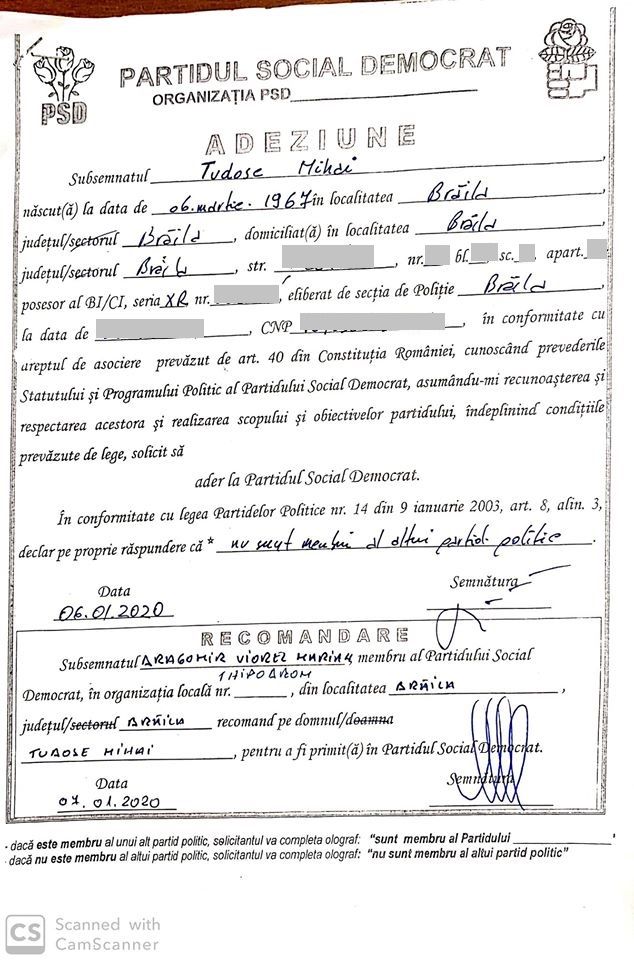 PSD
PARTIDUL SOCIAL DEMOCRAT
ORGANIZAȚIA PSD
ADEZIUNE
Subsemnatul Tudose Mihai,
născut(ă) la data de 06.martie.1967 în localitatea Brăila
județul/sectorul Brăila, domiciliat(ă) în localitatea Brăila
județul/sectorul Brăila, str. nr. bl. sc. , apart.
posesor al BI/CI, seria XR nr. , eliberat de secția de Poliție Brăila
la data de , CNP , în conformitate cu
areptul de asociere prevăzut de art. 40 din Constituția României, cunoscând prevederile
Statutului și Programului Politic al Partidului Social Democrat, asumându-mi recunoașterea și
respectarea acestora și realizarea scopului și obiectivelor partidului, îndeplinind condițiile
prevăzute de lege, solicit să
ader la Partidul Social Democrat.
În conformitate cu legea Partidelor Politice nr. 14 din 9 ianuarie 2003, art. 8, alin. 3,
declar pe proprie răspundere că * nu sunt membru al altui partid politic.
Data Semnătura
06.01.2020
RECOMANDARE
Subsemnatul DRAGOMIR VIOREL MARIAN membru al Partidului Social
HIPODROM
Democrat, în organizația locală nr. , din localitatea BRĂILA,
județul/sectorul BRĂILA recomand pe domnul/doamna
TUDOSE MIHAI, pentru a fi primit(ă) în Partidul Social Democrat.
Data Semnătura
07.01.2020
- dacă este membru al unui alt partid politic, solicitantul va completa olograf: "sunt membru al Partidului "
- dacă nu este membru al altui partid politic, solicitantul va completa olograf: "nu sunt membru al altui partid politic"
CS Scanned with
CamScanner